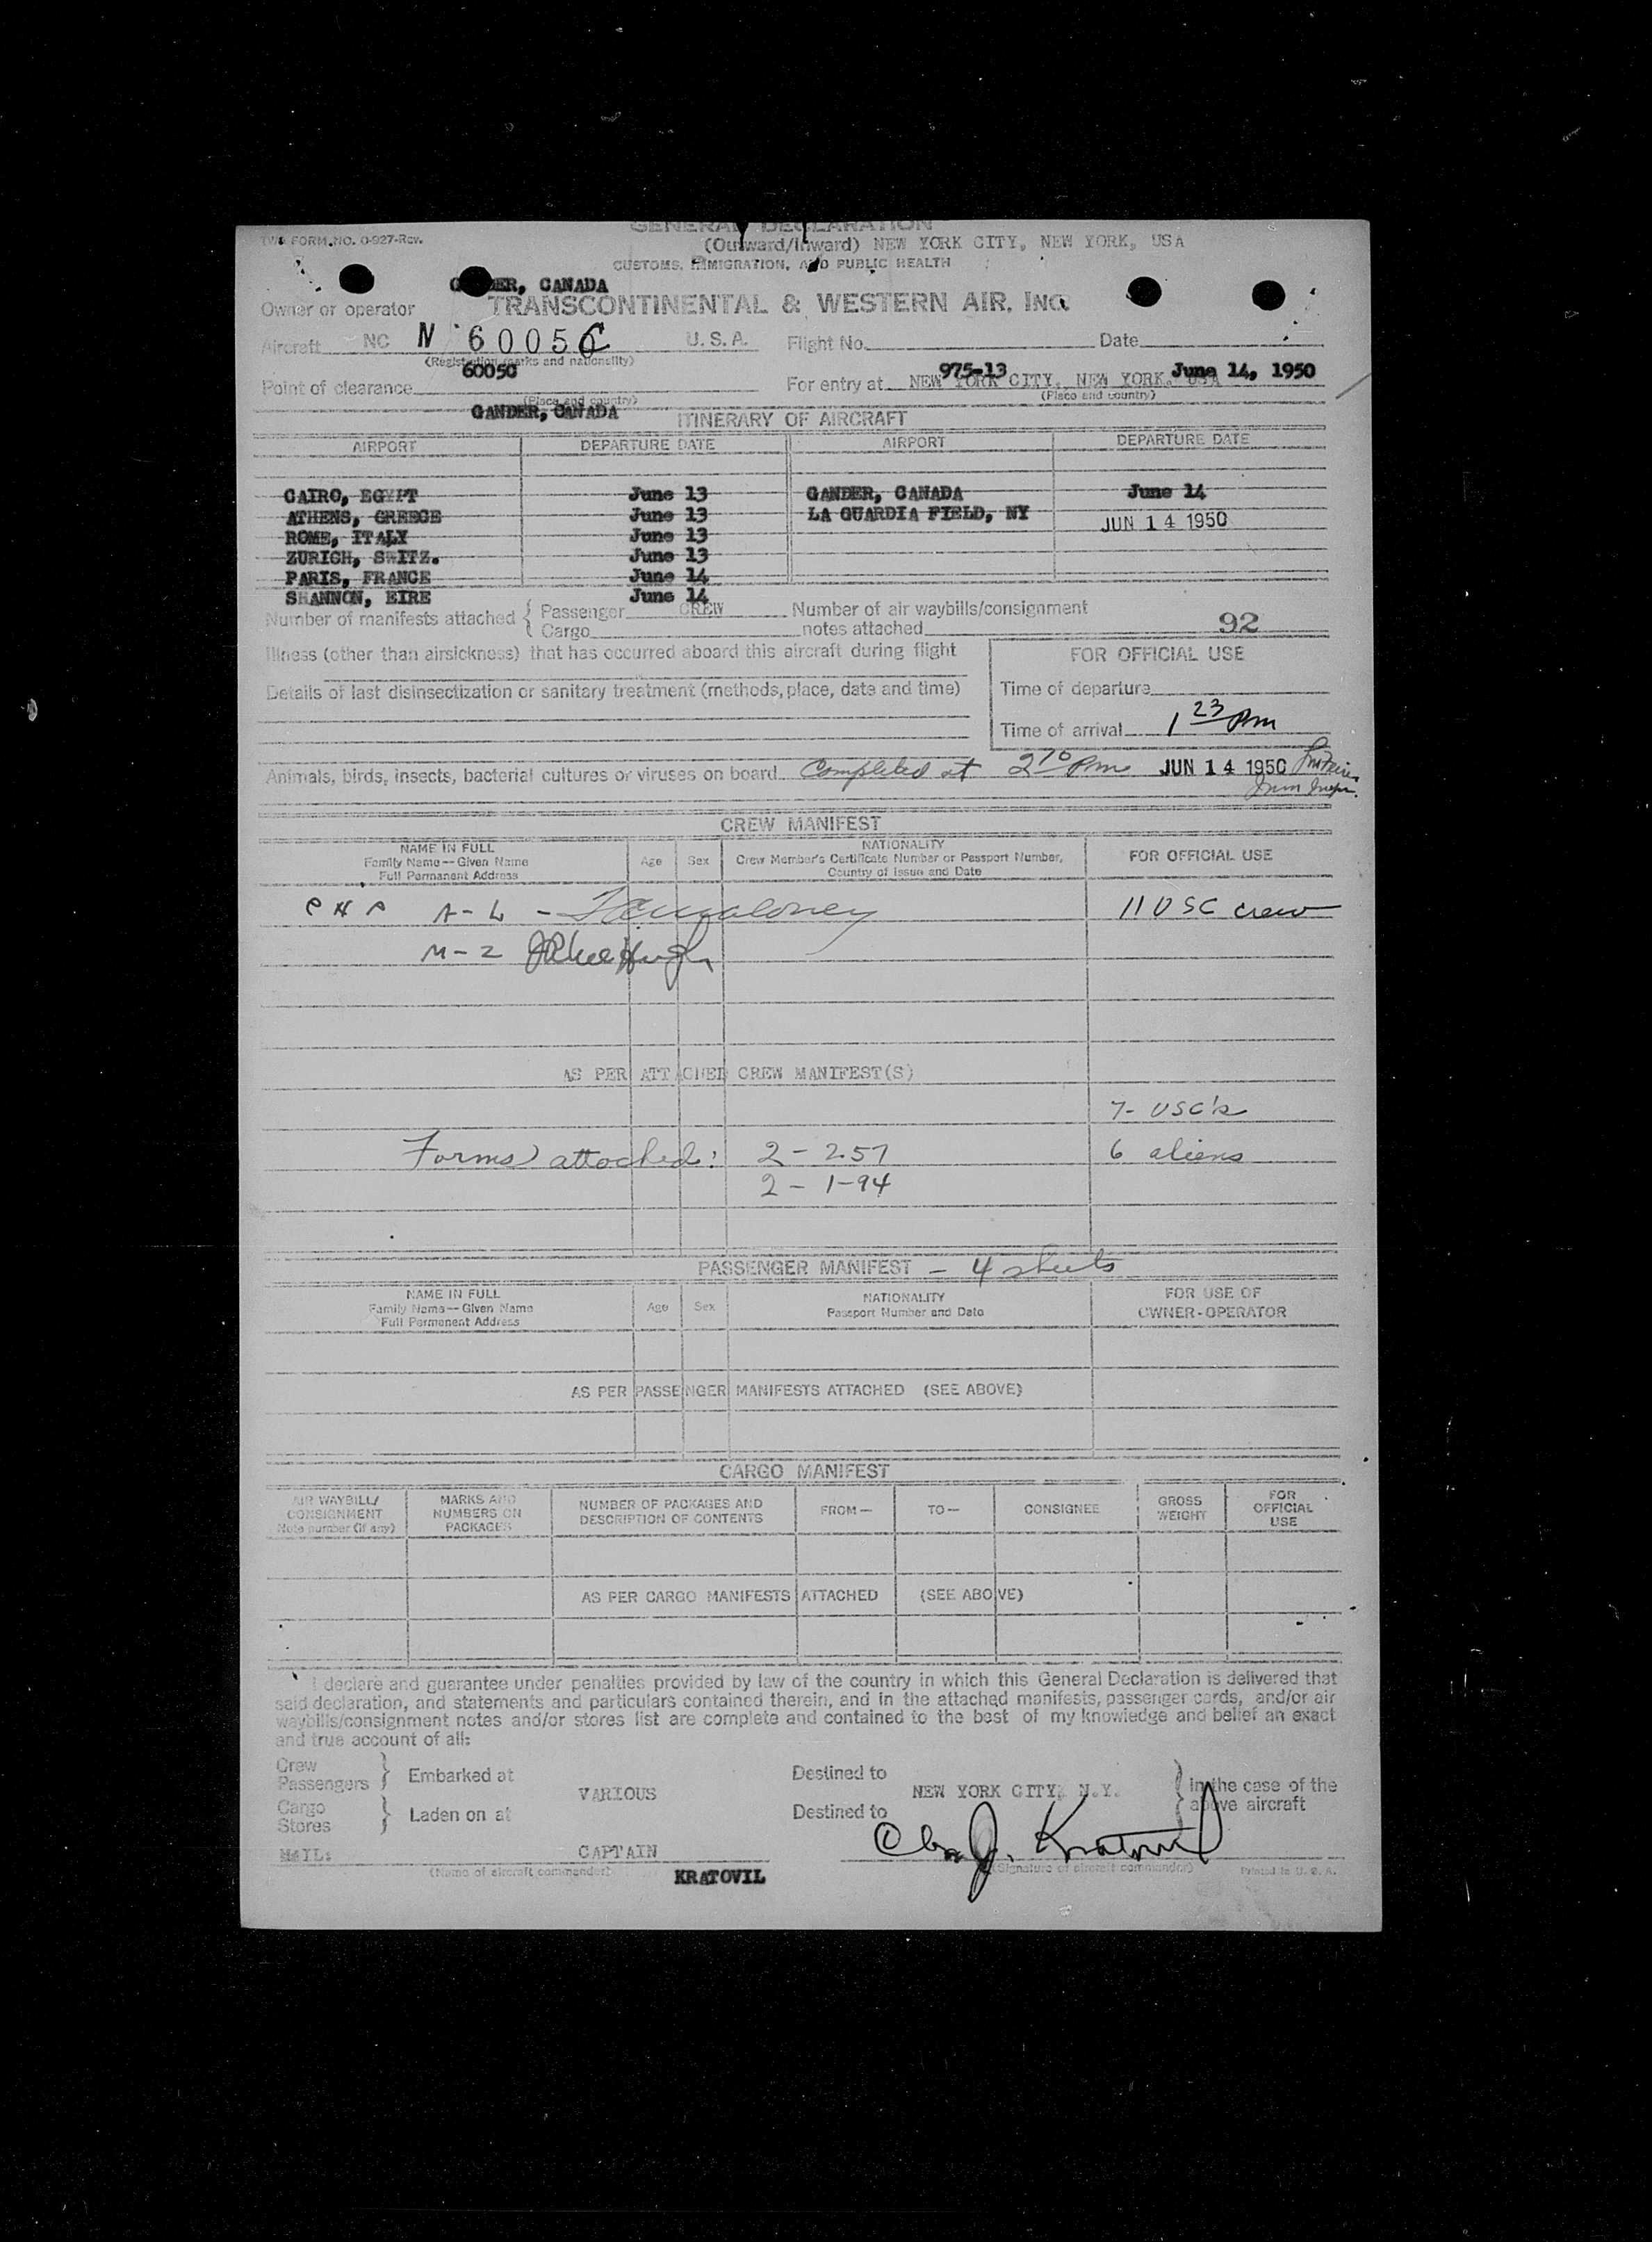 TWA FORM NO. 0-927-Rev.
GENERAL DECLARATION
(Outward/Inward) NEW YORK CITY, NEW YORK, USA
CUSTOMS, IMMIGRATION, AND PUBLIC HEALTH
GANDER, CANADA
Owner or operator TRANSCONTINENTAL & WESTERN AIR, INC.
Aircraft NC N 6005C U.S.A. Flight No. Date
(Registration marks and nationality)
60050 975-13 June 14, 1950
Point of clearance For entry at NEW YORK CITY, NEW YORK, USA
(Place and country) (Place and country)
GANDER, CANADA
ITINERARY OF AIRCRAFT
AIRPORT DEPARTURE DATE AIRPORT DEPARTURE DATE
CAIRO, EGYPT June 13 GANDER, CANADA June 14
ATHENS, GREECE June 13 LA GUARDIA FIELD, NY JUN 14 1950
ROME, ITALY June 13
ZURICH, SWITZ. June 13
PARIS, FRANCE June 14
SHANNON, EIRE June 14
Number of manifests attached { Passenger CREW Number of air waybills/consignment
Cargo notes attached 92
Illness (other than airsickness) that has occurred aboard this aircraft during flight
FOR OFFICIAL USE
Details of last disinsectization or sanitary treatment (methods, place, date and time)
Time of departure
Time of arrival 1 23 Pm
Animals, birds, insects, bacterial cultures or viruses on board Completed at 2 10 Pm JUN 14 1950
CREW MANIFEST
NAME IN FULL Family Name—Given Name Full Permanent Address Age Sex NATIONALITY Crew Member's Certificate Number or Passport Number, Country of Issue and Date FOR OFFICIAL USE
PHP A-L - 11 USC crew
M-Z
AS PER ATTACHED CREW MANIFEST(S)
7- USC's
Forms attached: 2 - 257 6 aliens
2 - I-94
PASSENGER MANIFEST - 4 sheets
NAME IN FULL Family Name—Given Name Full Permanent Address Age Sex NATIONALITY Passport Number and Date FOR USE OF OWNER-OPERATOR
AS PER PASSENGER MANIFESTS ATTACHED (SEE ABOVE)
CARGO MANIFEST
AIR WAYBILL/ CONSIGNMENT Note number (if any) MARKS AND NUMBERS ON PACKAGES NUMBER OF PACKAGES AND DESCRIPTION OF CONTENTS FROM— TO— CONSIGNEE GROSS WEIGHT FOR OFFICIAL USE
AS PER CARGO MANIFESTS ATTACHED (SEE ABOVE)
I declare and guarantee under penalties provided by law of the country in which this General Declaration is delivered that
said declaration, and statements and particulars contained therein, and in the attached manifests, passenger cards, and/or air
waybills/consignment notes and/or stores list are complete and contained to the best of my knowledge and belief an exact
and true account of all:
Crew Passengers } Embarked at VARIOUS Destined to NEW YORK CITY, N.Y. } in the case of the above aircraft
Cargo Stores } Laden on at Destined to
MAIL: CAPTAIN Chas J. Kratovil
(Name of aircraft commander) KRATOVIL (Signature of aircraft commander) Printed in U.S.A.